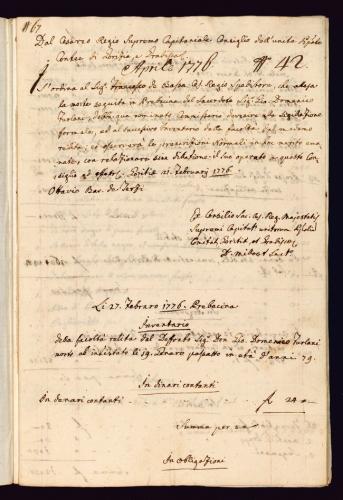 N 67
Dal Cesareo Regio Supremo Capitaniale Consiglio dell'unite
Contee di Gorizia e Gradisca
Aprile 1776 N 42
S'ordina al Sig. Francesco de Regio che attesa
la morte seguita in Prebacina del Sacerdote Sig. Gio. Domenico
Furlani, debba, qua nominato Commissario devenire alla
formale, ed al successivo Inventario della facoltà dal medemo
relitta; ed osservare le prescrizioni Normali in
con relazionare senza dilatione il suo operato a questo Con
siglio Gorizia 21. Febraro 1776
Ottavio Bar. de Terzi
Ex Consilio Sac. Cæs. Reg. Majestatis
Supremi Capitat. unitorum
Goritiæ et Gradiscæ
Li 27. Febraro 1776. Prebacina
Inventario
della facoltà relitta dal Defonto Sig. Don Gio. Domenico Furlani
morto ab intestato li 19. Genaro passato in età d'anni 79.
In denari contanti
In denari contanti f 24
Summa per
In obligazioni